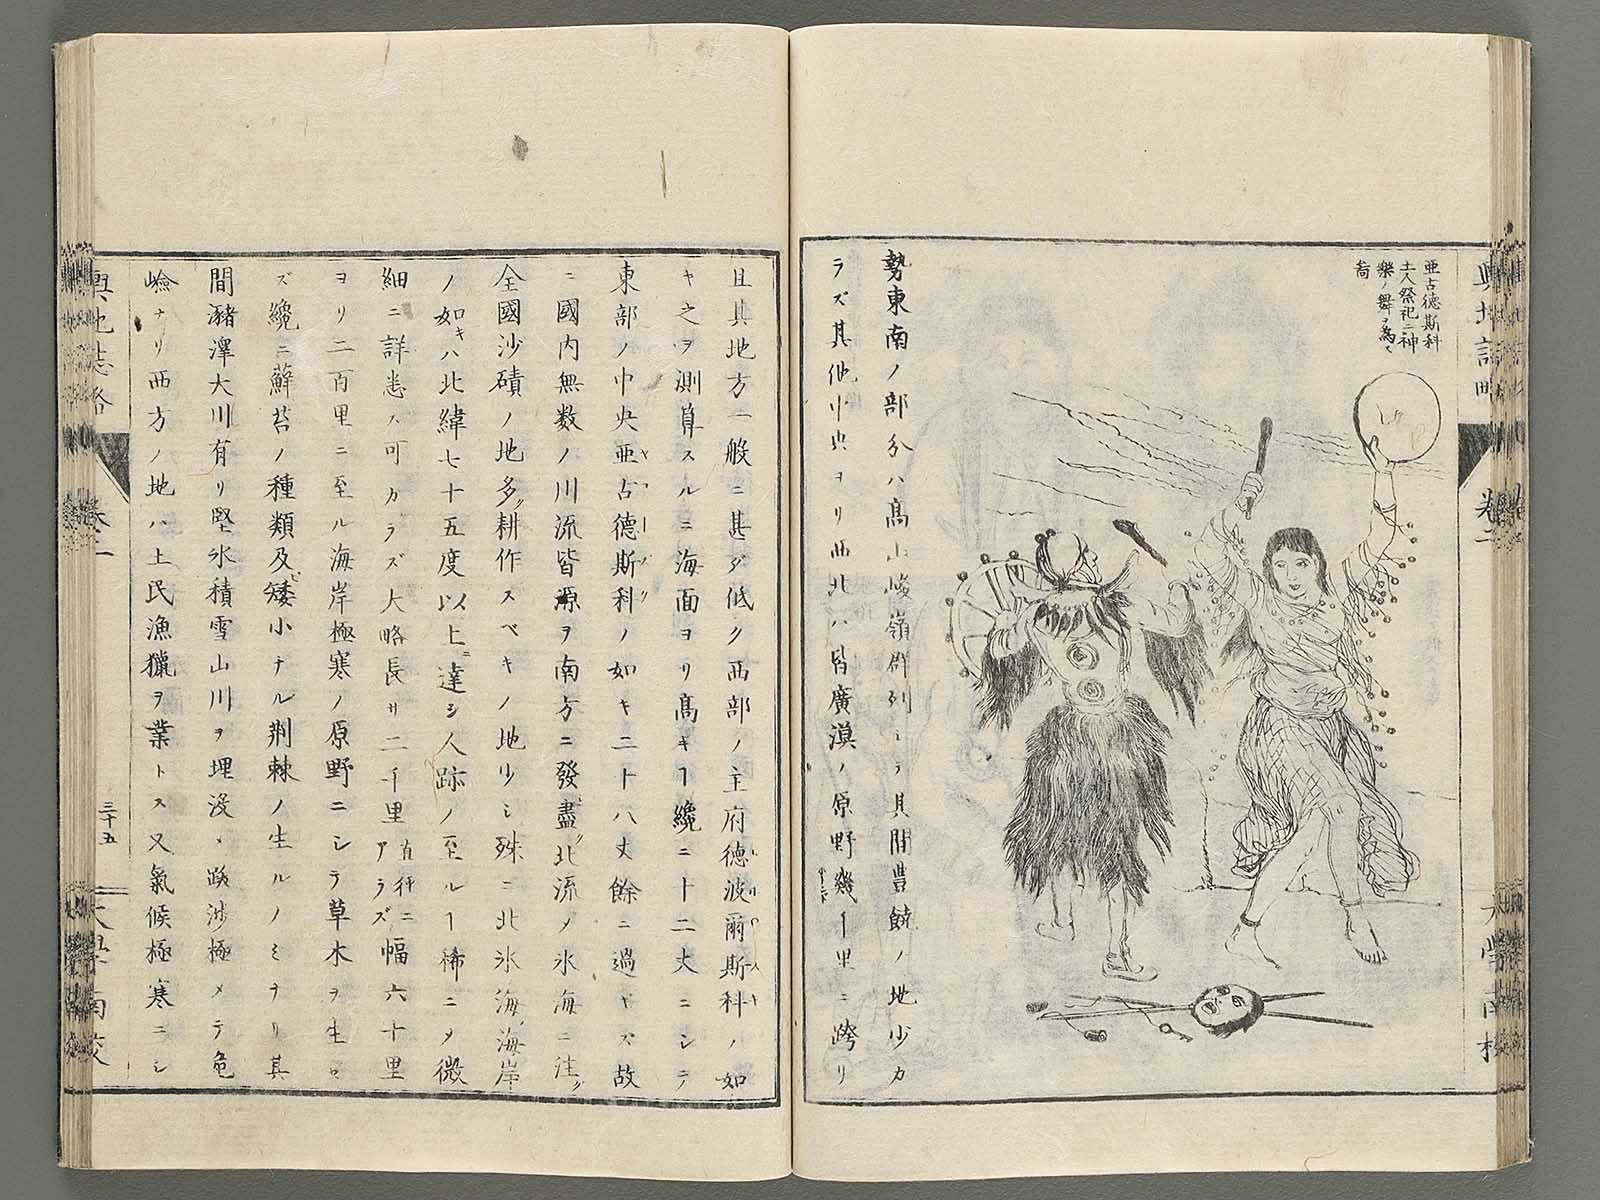 亜古徳斯科
土人祭祀ニ神
樂ノ舞ヲ為ス
啚
勢東南ノ部分ハ髙山峻嶺群列シテ其間豊饒ノ地少カ
ラズ其他中央ヨリ西北ハ皆廣漠ノ原野幾千里ニ跨リ
且其地方一般ニ甚ダ低ク西部ノ主府徳波爾斯科ノ如
キ之ヲ測算スルニ海面ヨリ髙キ
纔ニ十二丈ニシテ
東部ノ中央亜古德斯科ノ如キ二十八丈餘ニ過ギズ故
ニ國内無数ノ川流皆源ヲ南方ニ發盡ク北流ノ氷海ニ注グ
全國沙磧ノ地多ク耕作スベキノ地少シ殊ニ北氷海海岸
ノ如キハ北緯七十五度以上ニ達シ人跡ノ至ル
稀ニメ微
細ニ詳悉ス可カラズ大略長サ二千里百秆ニアラズ幅六十里
ヨリ二百里ニ至ル海岸極寒ノ原野ニシテ草木ヲ生ゼ
ズ纔ニ蘚苔ノ種類及ビ矮小ナル荊棘ノ生ルノミナリ其
間瀦澤大川有リ堅氷積雪山川ヲ埋沒シ跋渉極メテ危
嶮ナリ西方ノ地ハ土民漁獵ヲ業トス又氣候極寒ニシ
輿地誌略
卷二
三十五
大學南校